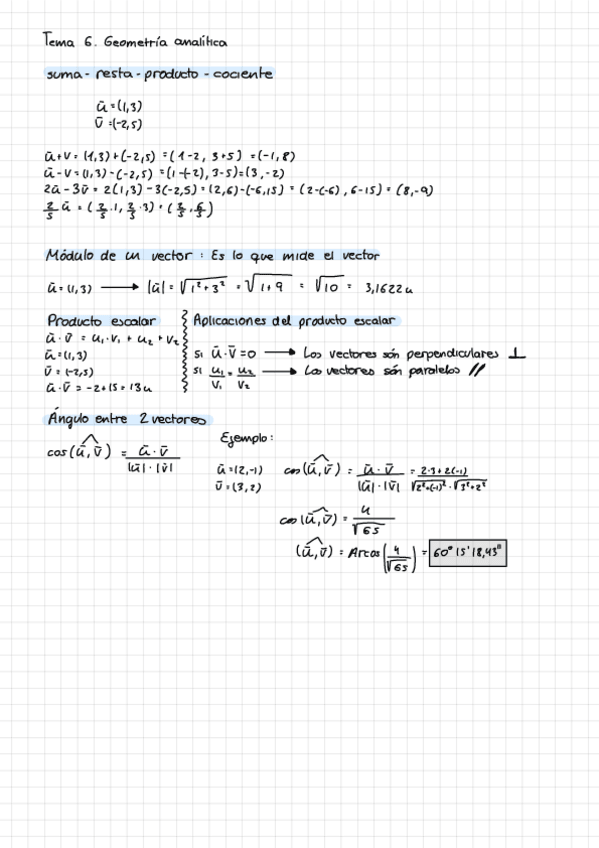 Tema 6. Geometría analítica
suma - resta - producto - cociente
ū = (1,3)
v̄ = (-2,5)
ū+v = (1,3)+(-2,5) = (1-2, 3+5) = (-1,8)
ū-v = (1,3)-(-2,5) = (1+2), 3-5) = (3,-2)
2ū-3v̄ = 2(1,3)-3(-2,5) = (2,6)-(-6,15) = (2-(-6), 6-15) = (8,-9)
Módulo de un vector : Es lo que mide el vector
ū = (1,3) → |ū| = √1²+3² = √1+9 = √10 = 3,1622u
Producto escalar
ū · v̄ = u₁·v₁ + u₂ + v₂
ū = (1,3)
v̄ = (-2,5)
ū · v̄ = -2+15 = 13u
Aplicaciones del producto escalar
si ū · v̄ = 0 → Los vectores són perpendiculares ⊥
si u₁/v₁ = u₂/v₂ → Los vectores són paralelos //
Ángulo entre 2 vectores
cos(ū,v̄) = ū · v̄ / |ū| · |v̄|
Ejemplo:
ū = (2,-1)
v̄ = (3,2)
cos(ū,v̄) = ū · v̄ / |ū| · |v̄| = 2·3+2(-1) / √2²+(-1)² · √3²+2²
cos(ū,v̄) = 4/√65
(ū,v̄) = Arcos(4/√65) = 60° 15' 18,43"